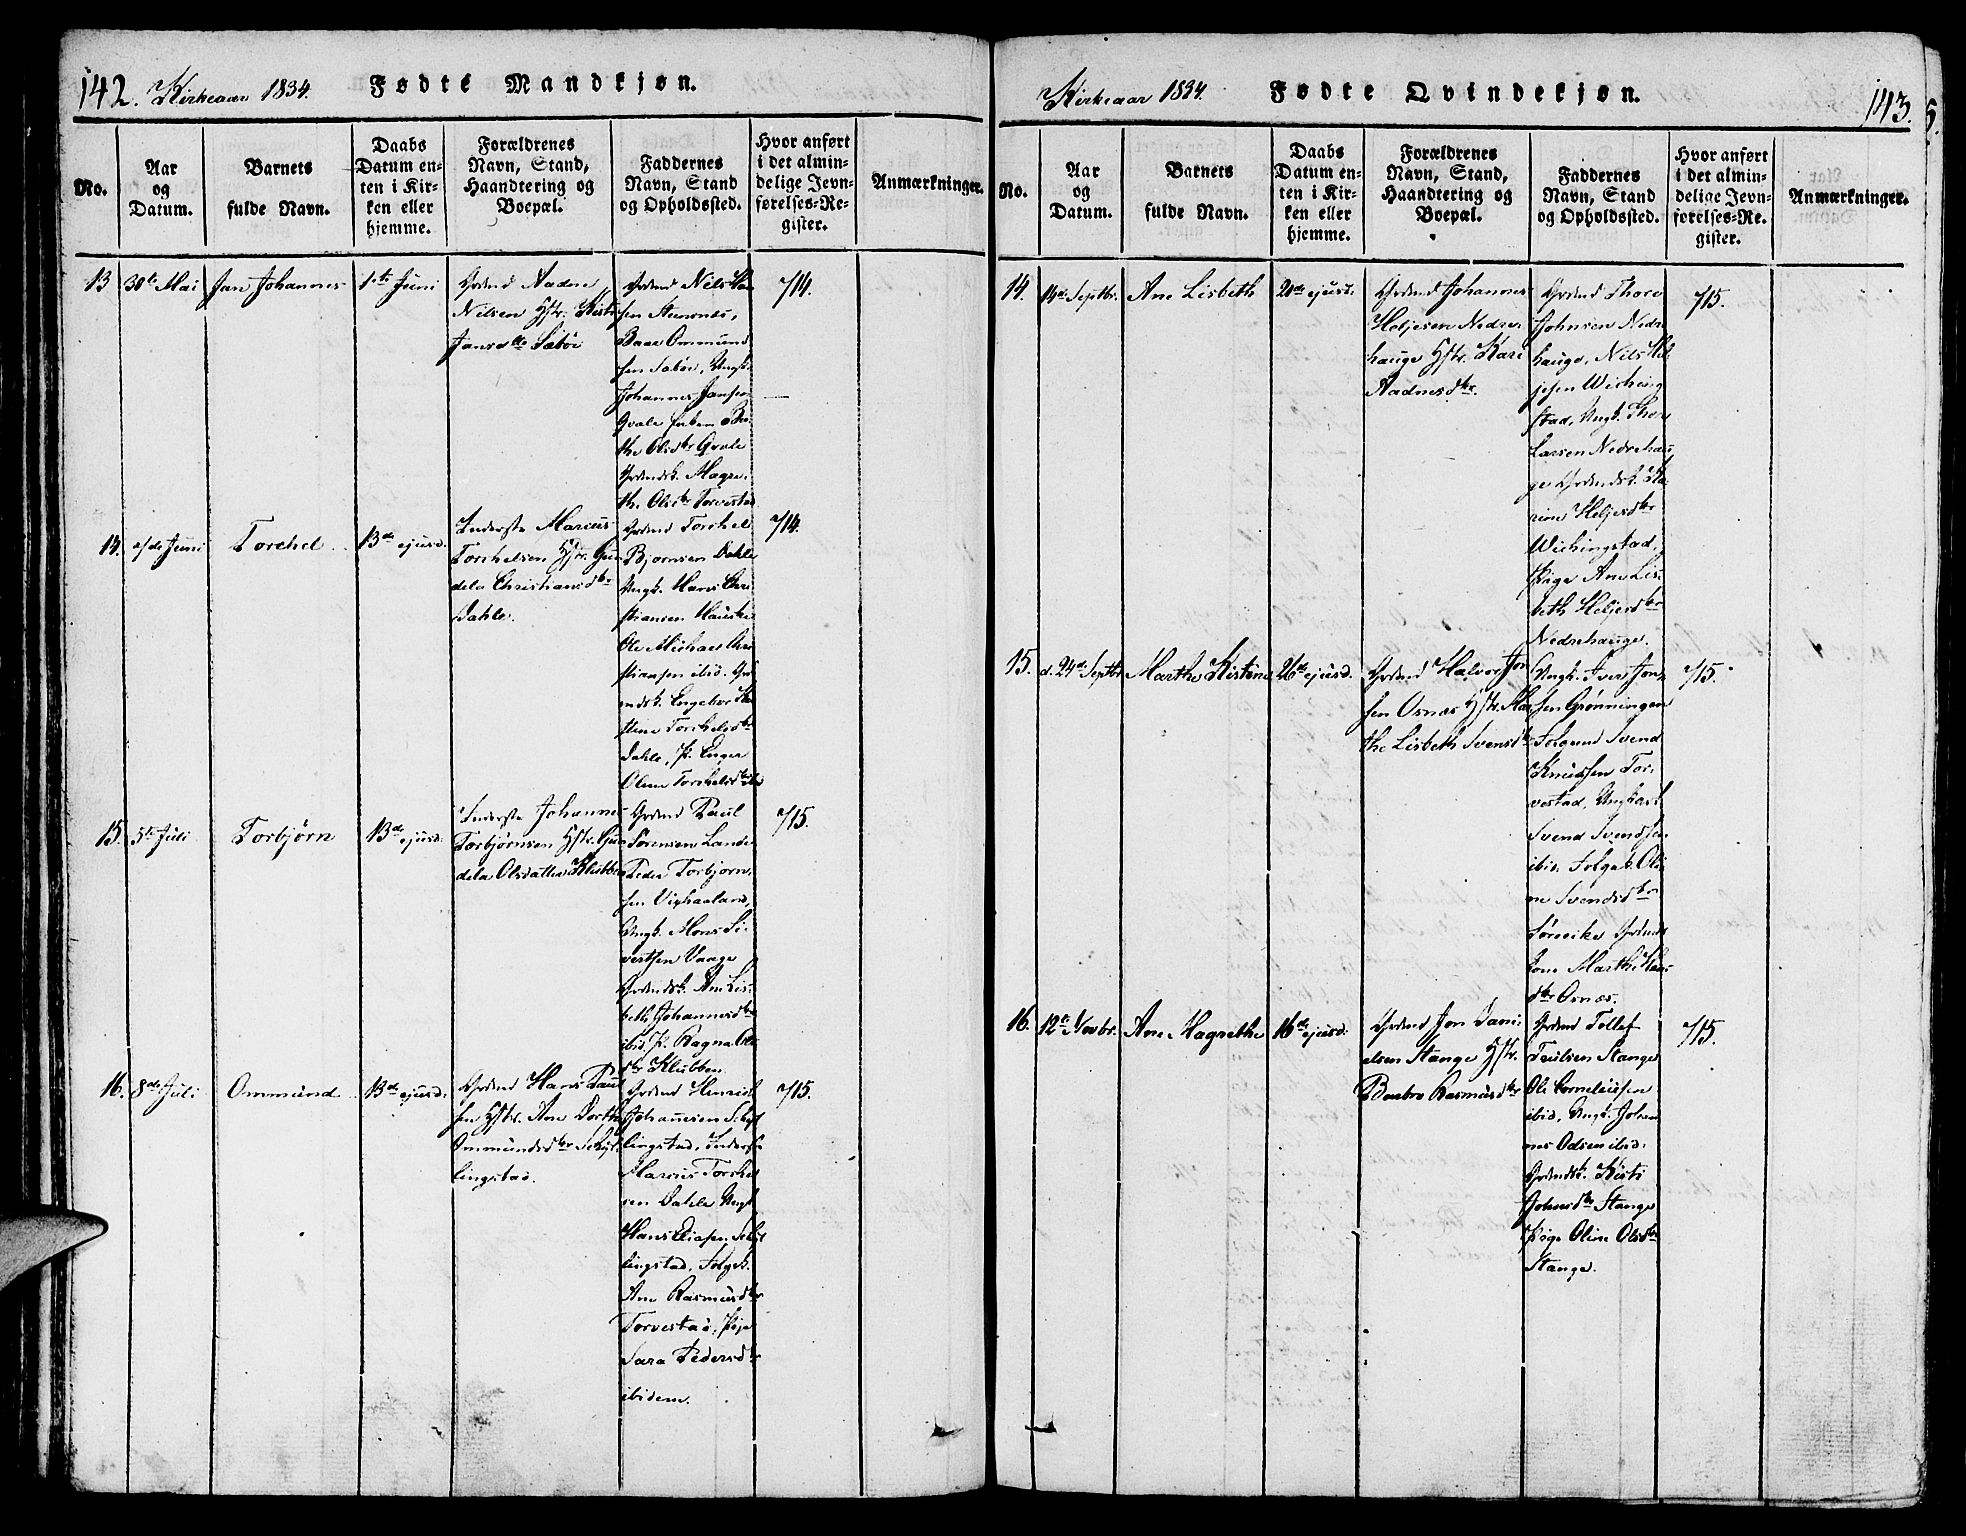 142. Kirkeaar 1834. Fødte Mandkjøn.
No.
Aar
og
Datum.
Barnets
fulde Navn.
Daabs
Datum en-
ten i Kir-
ken eller
hjemme.
Forældrenes
Navn, Stand,
Haandtering og
Boepæl.
Faddernes
Navn, Stand
og Opholdssted.
Hvor anført
i det almin-
delige Jevn-
førelses-Re-
gister.
Anmærkninger.
13
30te Mai
Jan Johannes
1ste Juni
Grdmd Aadne
Nilsen Hstr. Kisti
Jansdtr Sæbøe
Grdmd Nils
sen
Baar Ommund
sen Sæbøe, Ungk.
Johannes Jansen
Qvale
the Olsdtr Qvale
Grdmdsk. Magre-
the Olsdtr Torvestad
7/14.
14.
Juni
Torchel
13de ejusd.
Inderste Marcus
Torchelsen Hstr. Gun
dela Christiansdtr
Dahle.
Grdmd Torchel
Bjørnsen Dahle
Ungk. Hans Chri
stiansen Hauske
Ole Michael Chri
stiansen ibid. Gr
mdsk. Engebor
stine Torchelsdtr
Dahle, P. Inger
Oline Torchelsdtr ibd
7/14.
15.
5te Juli
Torbjørn
13de ejusd.
Inderste Johannes
Torbjørnsen Hstr. Gun
dela Olsdatter Klubben
Grdmd Paul
Sørensen Lande
Peder Torbjørn
sen Vixhaaland,
Ungk. Mons Si-
vertsen Vaage
Grdmdsk. Ane Lis-
beth Johannesdtr
ibid, P. Ragna Ols
dtr Klubben.
7/15.
16.
8de Juli
Ommund
13de ejusd.
Grdmd Hans Paul
sen Hstr. Ane Dorthe
Ommundsdtr Schjel
lingstad.
Grdmd Henrich
Johannesen Schjel
lingstad, Inderste
Marcus Torchel
sen Dahle Ungk.
Hans Schjel
lingstad, Folgek.
Ane Rasmusdtr
Torvestad, Pige
Sara Pedersdtr
ibidem.
7/15.
Kirkeaar 1834. Fødte Qvindekjøn. 143.
No.
Aar
og
Datum.
Barnets
fulde Navn.
Daabs
Datum en-
ten i Kir-
ken eller
hjemme.
Forældrenes
Navn, Stand,
Haandtering og
Boepæl.
Faddernes
Navn, Stand
og Opholdssted.
Hvor anført
i det almin-
delige Jevn-
førelses-Re-
gister.
Anmærkninger.
14.
14de Septbr.
Ane Lisbeth
21de ejusd.
Grdmd Johannes
Heljesen Nedre
hauge Hstr. Kari
Aadnesdtr.
Grdmd Thore
Johnsen Nedre
hauge, Nils Hel
jesen Wiching
stad, Ungk. Thore
Larsen Nedrehau
ge Grdmdsk. Ka
rine Heljesdtr
Wichingstad,
Pige Ane Lis-
beth Heljesdtr
Nedrehauge.
7/15.
15.
d. 24de Septbr
Marthe Kistine
26de ejusd.
Grdmd Halvor Jon
sen Osnæs Hstr. Mar
the Lisbeth Svensdtr
Ungk. Iver Jon
sen Grønningen
Folgemd Svend
Knudsen Tor-
vestad, Ungkarl
Svend Svendsen
ibid. Folgek. Oli
ne Svendsdtr
Sørvike Grdmds
kone Marthe
dtr Osnæs.
7/15.
16.
12te Novbr.
Ane Magrethe
16de ejusd.
Grdmd Jon Dani-
elsen Stange Hstr.
Rasmusdtr
Grdmd Tollef
Stange
Ole Corneliussen
ibid, Ungk. Johan
nes Odsen ibid.
Grdmdsk. Kisti
Johnsdtr Stange
Pige Oline Olsdtr
Stange.
7/15.